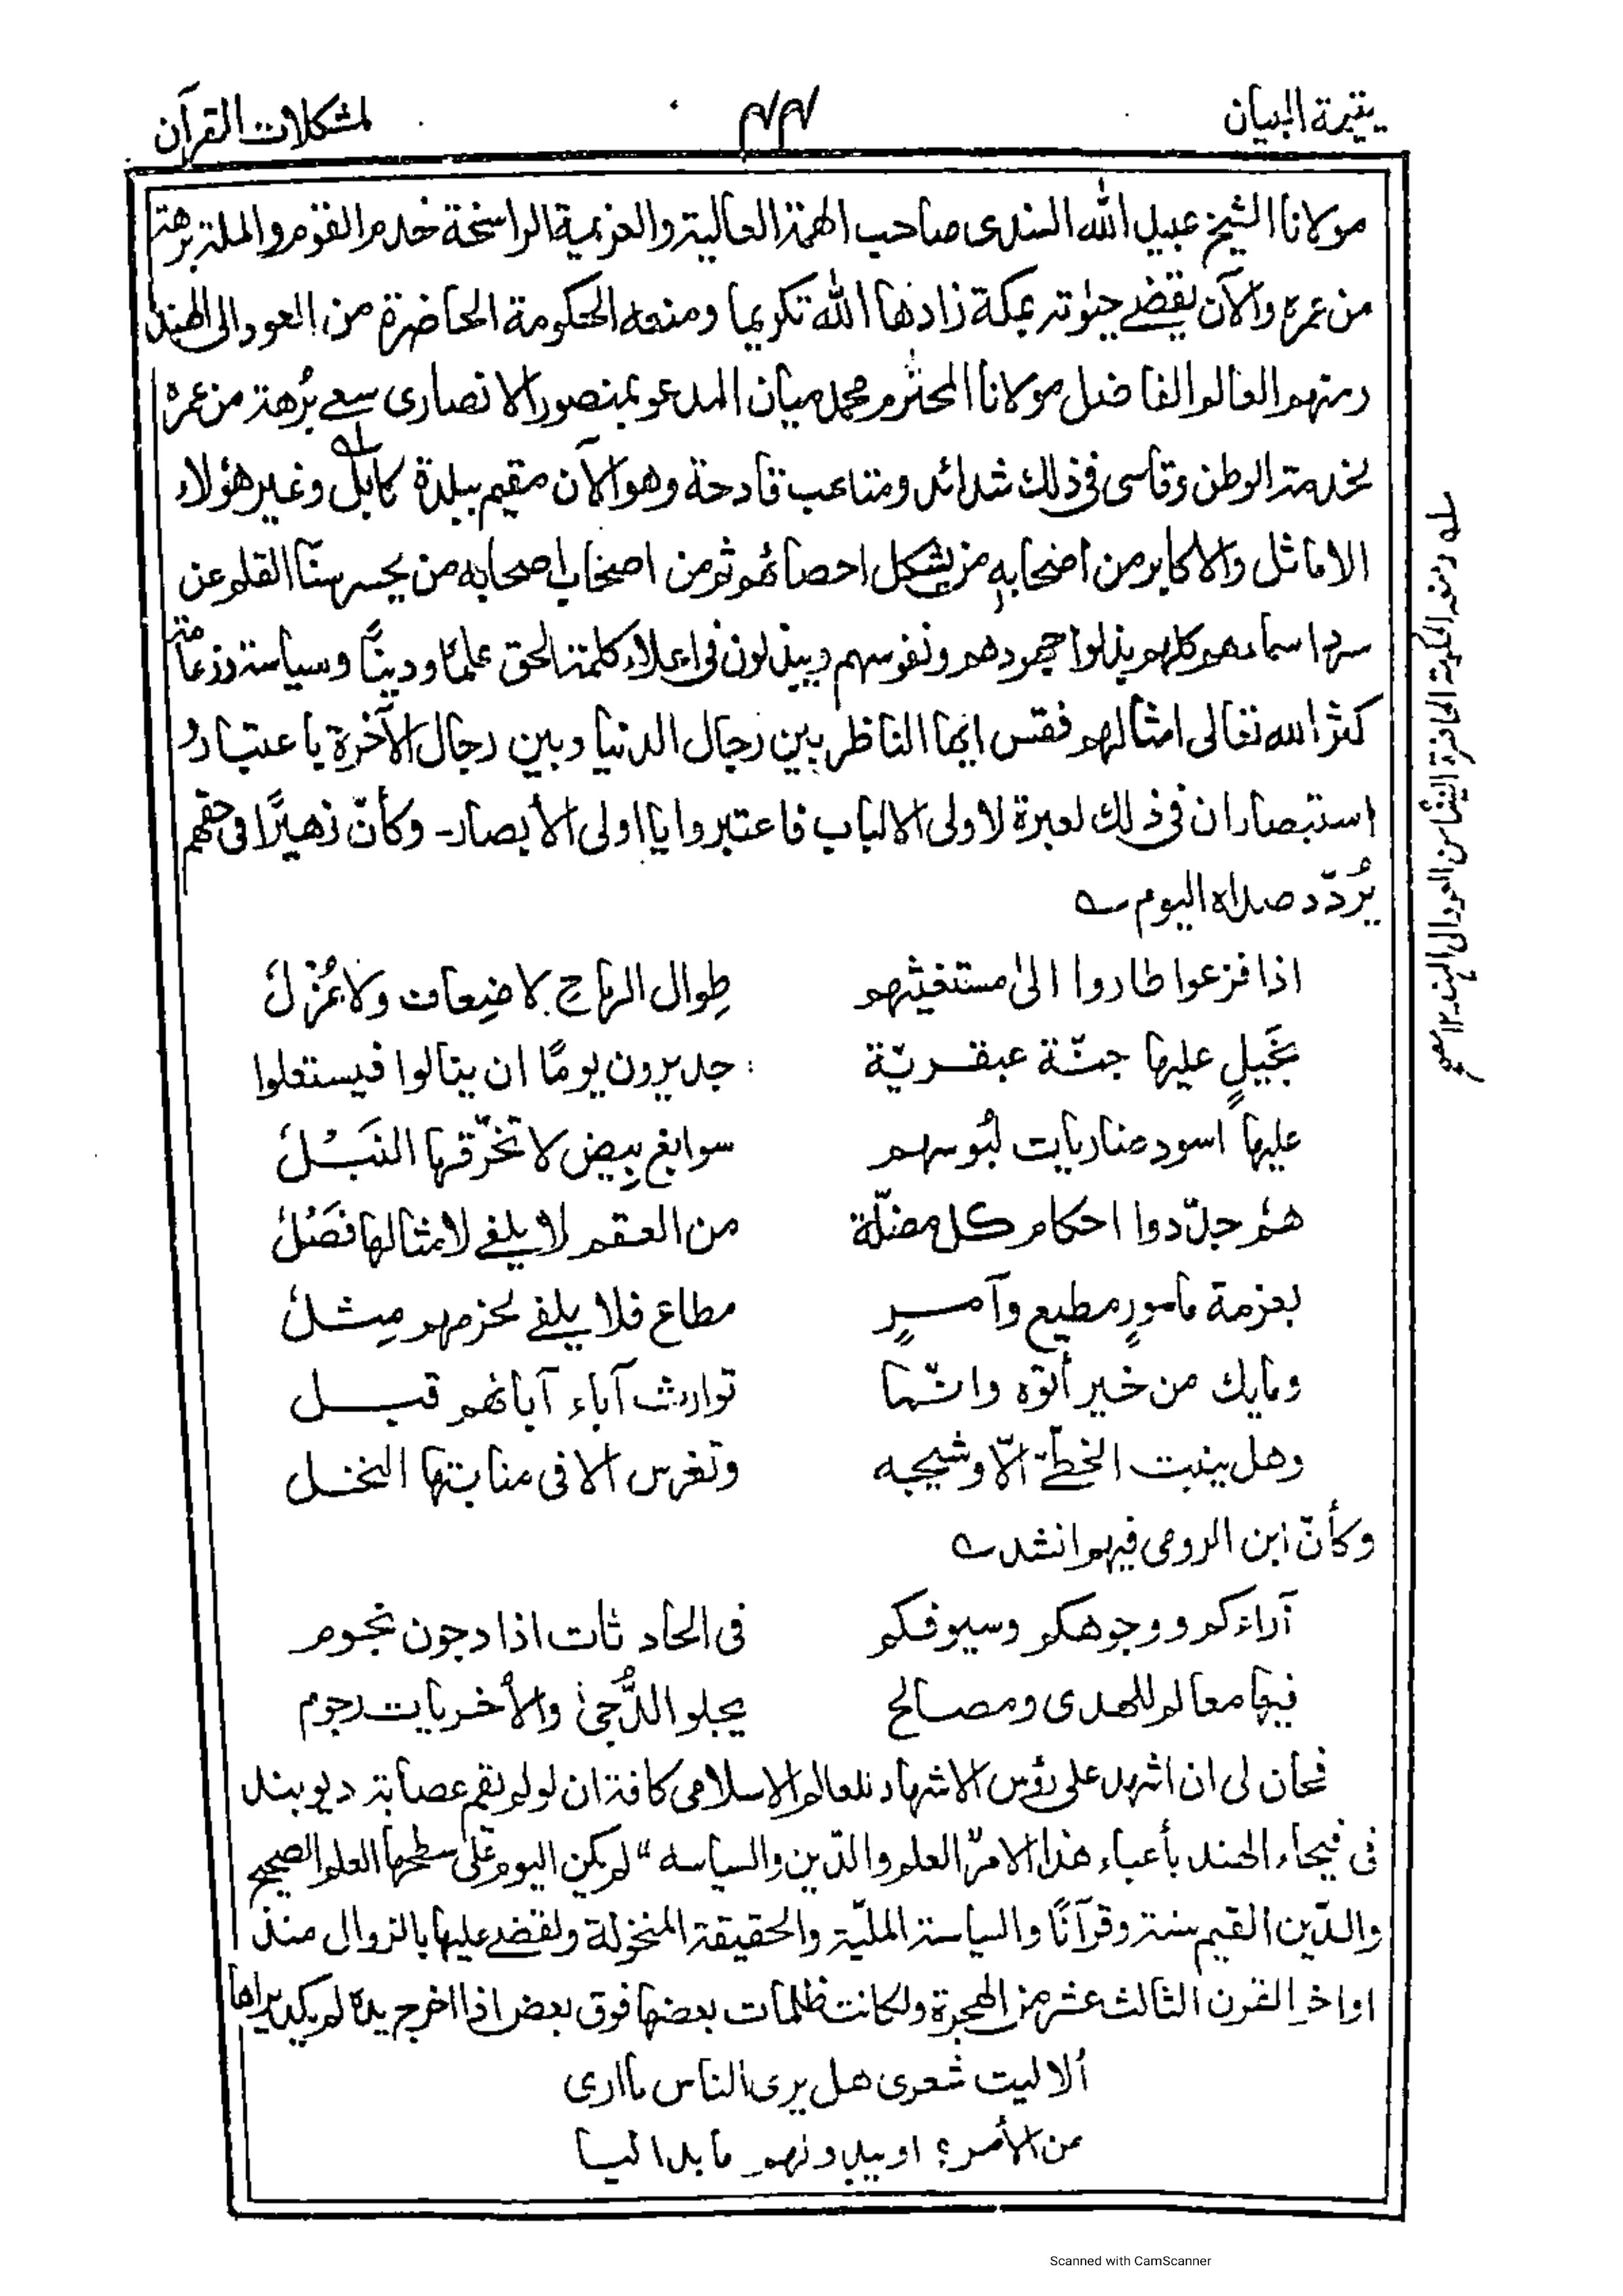 يتيمة البيان
٤٤
لمشكلات القرآن
مولانا الشيخ عبيد الله السندى صاحب الهمة العالية والعزيمة الراسخة خدم القوم والملة برهة
من عمره والآن يقضے حيٰوته بمكة زادها الله تكريما ومنعه الحكومة الحاضرة من العود الى الهند
ومنهم العالم الفاضل مولانا المحترم محمد ميان المدعو بمنصور الانصارى سعے بُرهة من عمره
لخدمة الوطن وقاسى فى ذلك شدائد ومتاعب فادحة وهو الآن مقيم ببلدة كابل له وغير هؤلاء
الاماثل والاكابر من اصحابه من يشكل احصائهم ثم من اصحاب اصحابه من يحسر هنا القلم عن
سرد اسمائهم كلهم بذلوا جهودهم ونفوسهم ويبذلون فى اعلاء كلمة الحق علمًا ودينًا وسياسة وزعامة
كثر الله تعالى امثالهم فقس ايها الناظر بين رجال الدنيا وبين رجال الآخرة باعتبار و
استبصار ان فى ذلك لعبرة لاولى الالباب فاعتبروا يا اولى الأبصار- وكأنّ زهيرًا فى حقهم
يُردّد صداه اليوم ؎
اذا فزعوا طاروا الىٰ مستغيثهم طِوال الرماح لا ضِعاف ولا عُزْلُ
بخَيلٍ عليها جنّة عبقريّة جديرون يومًا ان ينالوا فيستعلوا
عليها اسود ضاريات لبُوسهم سوابغ بِيض لا تخرّقها النَبْلُ
هُم جدّدوا احكام كل مضلّة من العقم لا يلفے لامثالها فَصْلُ
بعزمة مامورٍ مطيع وآمرٍ مطاع فلا يلفے لحزمهم مِثلُ
ومايك من خير أتوه وانّما توارث آباء آبائهم قبل
وهل ينبت الخطّے الّا وشيجه وتغرس الا فى منابتها النخل
وكأنّ ابن الرومى فيهم انشد ؎
آراءكم ووجوهكم وسيوفكم فى الحادثات اذا دجون نجوم
فيها معالم للهدى ومصالح يجلو الدُّجىٰ والأُخريات رجوم
فحان لى ان اشهد على رؤس الاشهاد للعالم الاسلامى كافة ان لو لم تقم عصابة ديوبند
فى فيحاء الهند بأعباء هذا الامر "العلم والدّين والسياسه" لم يكن اليوم علىٰ سطحها العلم الصحيح
والدّين القيم سنة وقرآنًا والسياسة الملّيّة والحقيقة المنخولة ولقضے عليها بالزوال منذ
اواخرِ القرن الثالث عشر من الهجرة ولكانت ظلمات بعضها فوق بعض اذا اخرج يده لم يكد يراها
ألا ليت شعرى هل يرى الناس ما ارى
من الأمر؟ او يبدو لهم ما بدا ليا
له ومنعه الحكومة الحاضرة ايضًا من العود الى الهند ١٢
Scanned with CamScanner